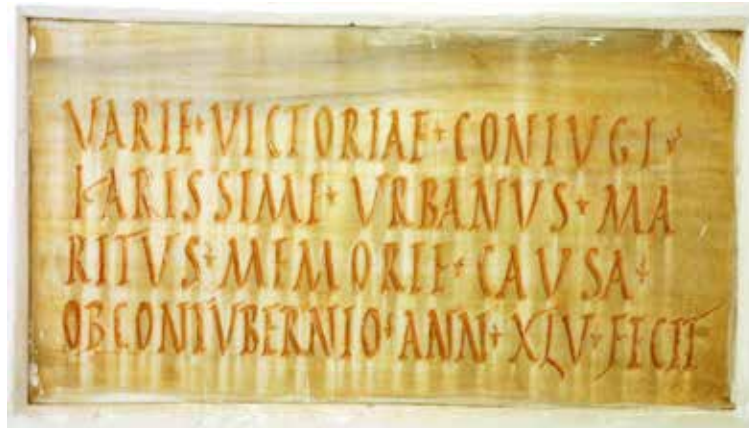 VARIE VICTORIAE CONIVGI
KARISSIME VRBANVS MA
RITVS MEMORIE CAVSA
OBCONTVBERNIO ANN XLV FECIT